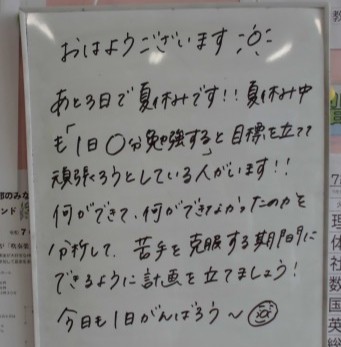 おはようございます
あと3日で夏休みです!!夏休み中
も「1日〇分勉強する」と目標を立てて
頑張ろうとしている人がいます!!
何ができて、何ができなかったのかを
分析して、苦手を克服する期間に
できるように計画を立てましょう!
今日も1日がんばろう〜